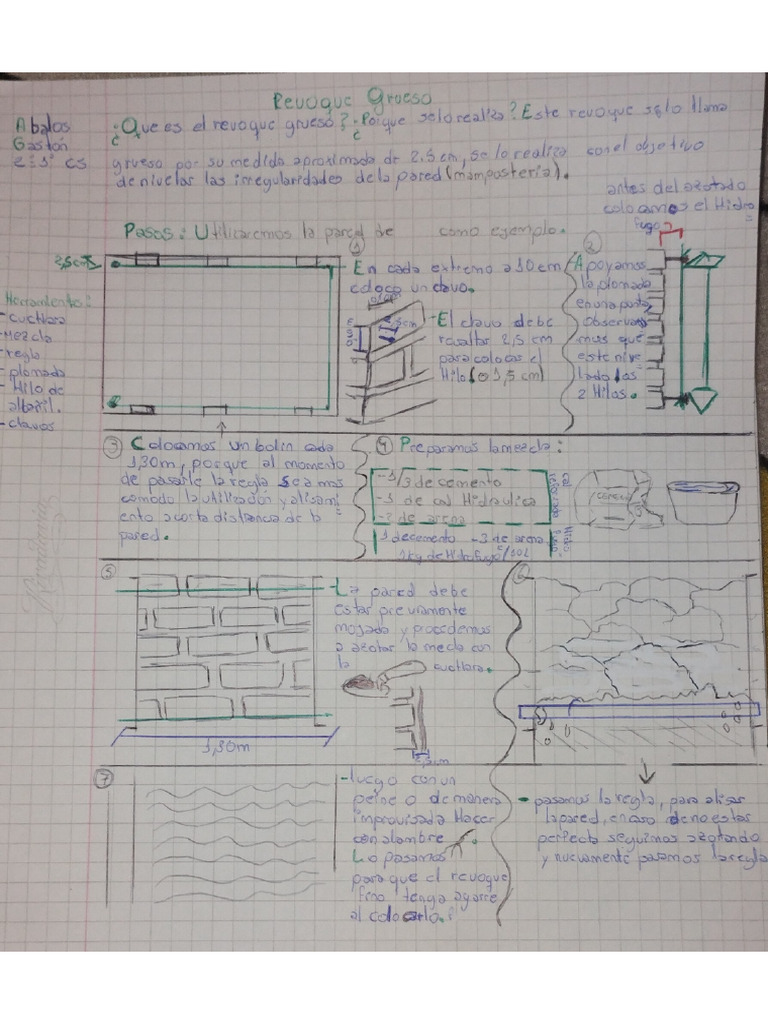 Revoque Grueso
Abalos
Gastón
2°: 1° CS
¿Que es el revoque grueso? ¿Porque se lo realiza? Este revoque se lo llama
grueso por su medida aproximada de 2,5 cm, se lo realiza con el objetivo
de nivelar las irregularidades de la pared (mampostería).
antes del azotado
colocamos el Hidro
fugo
Pasos: Utilizaremos la pared de como ejemplo.
2,5cm
Herramienta:
-cuchara
-Mezcla
-regla
-plomada
-Hilo de
albañil.
-clavos
1
En cada extremo a 10 cm
coloco un clavo.
2,5cm
-El clavo debe
resaltar 2,5 cm
para colocar el
Hilo (o 1,5 cm)
2
Apoyamos
la plomada
en una punta,
observare
mos que
este nive
lado los
2 Hilos.
3 Colocamos un bolin cada
1,30m, porque al momento
de pasarle la regla sea mas
comodo la utilización y alisami
ento a corta distancia de la
pared.
4 Preparamos la mezcla:
-1/3 de cemento
-1 de cal Hidraulica
-2 de arena
1 de cemento -3 de arena
1kg de Hidrofugo/10L
Hidro=
fugo
5
-La pared debe
estar previamente
mojada y procedemos
a azotar la mecla con
la cuchara.
1,30m
6
-pasamos la regla, para alisar
la pared, en caso de no estar
perfecta seguimos azotando
y nuevamente pasamos la regla
7
-luego con un
peine o de manera
improvisada Hacer
con alambre
Lo pasamos
para que el revoque
fino tenga agarre
al colocarlo.